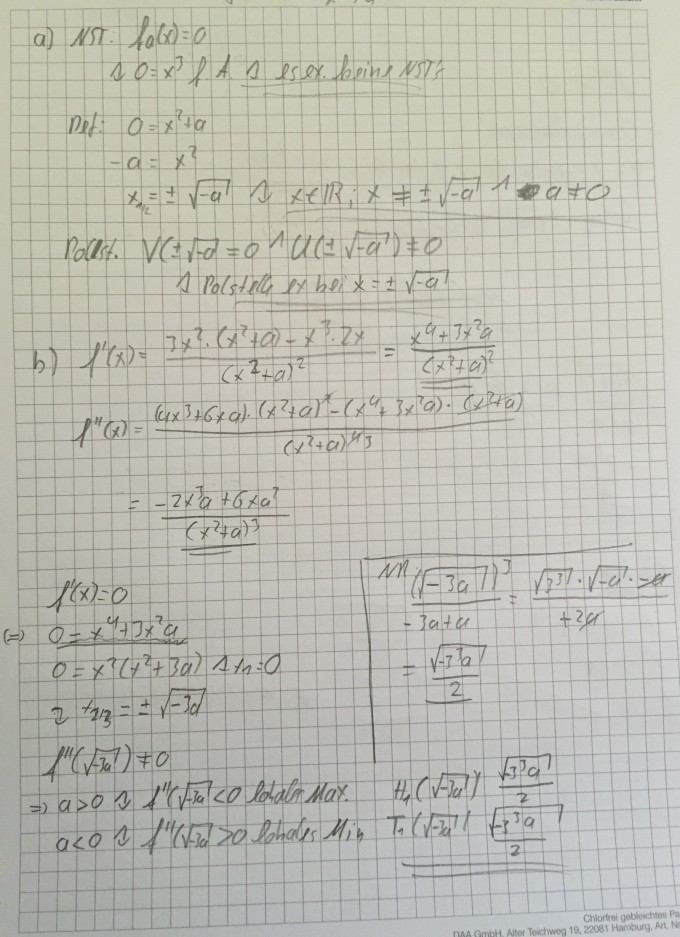 a) NST. fa(x)=0
⇒ 0=x³ f.A. ⇒ es ex. keine NST's
Def: 0=x²+a
-a= x²
x₁/₂=± √-a ⇒ x∈ℝ; x ≠ ±√-a ∧ a≠0
Polst. V(±√-a)=0 ∧ U(±√-a)≠0
⇒ Polstelle ex bei x=±√-a
b) f'(x)= 3x²·(x²+a)-x³·2x / (x²+a)² = x⁴+3x²a / (x²+a)²
f''(x)= (4x³+6xa)·(x²+a) -(x⁴+3x²a)· (x²+a) / (x²+a)³
= -2x³a+6xa² / (x²+a)³
f'(x)=0
(=) 0=x⁴+3x²a
0=x²(x²+3a) ⇒ x₁=0
⇒ x₂/₃=± √-3a
f''(√-3a)≠0
=> a>0 ⇒ f''(√-3a)<0 lokales Max. H₁(√-3a| √-3³a / 2
a<0 ⇒ f''(√-3a)>0 lokales Min T₁(√-3a| √-3³a / 2
NR (√-3a)³ / -3a+a = √3³·√-a·-a / +2a
= √-3³a / 2
Chlorfrei gebleichtes Pa
DAA GmbH, Alter Teichweg 19, 22081 Hamburg, Art. Nr